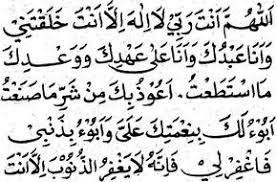 اَللّٰهُمَّ اَنْتَ رَبِّيْ لَا اِلٰهَ اِلَّا اَنْتَ خَلَقْتَنِيْ
وَاَنَا عَبْدُكَ وَاَنَا عَلٰى عَهْدِكَ وَوَعْدِكَ
مَا اسْتَطَعْتُ. اَعُوْذُبِكَ مِنْ شَرِّ مَا صَنَعْتُ
اَبُوْءُ لَكَ بِنِعْمَتِكَ عَلَيَّ وَاَبُوْءُ بِذَنْبِيْ
فَاغْفِرْ لِيْ فَاِنَّهُ لَا يَغْفِرُ الذُّنُوْبَ اِلَّا اَنْتَ